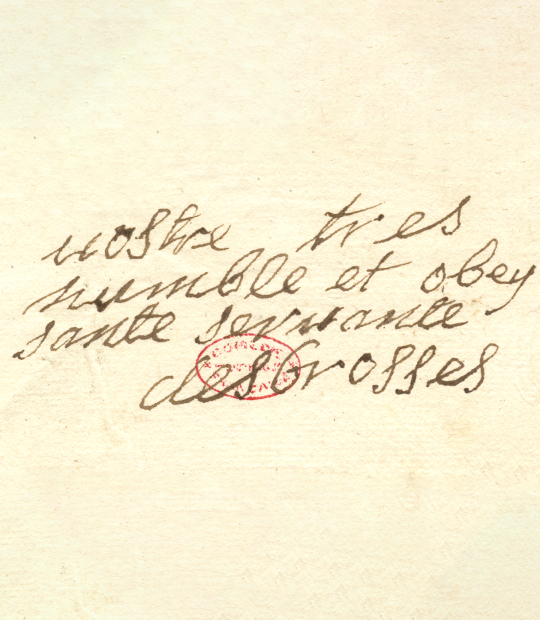 uostre tres
humble et obey
sante seruante
desbrosses